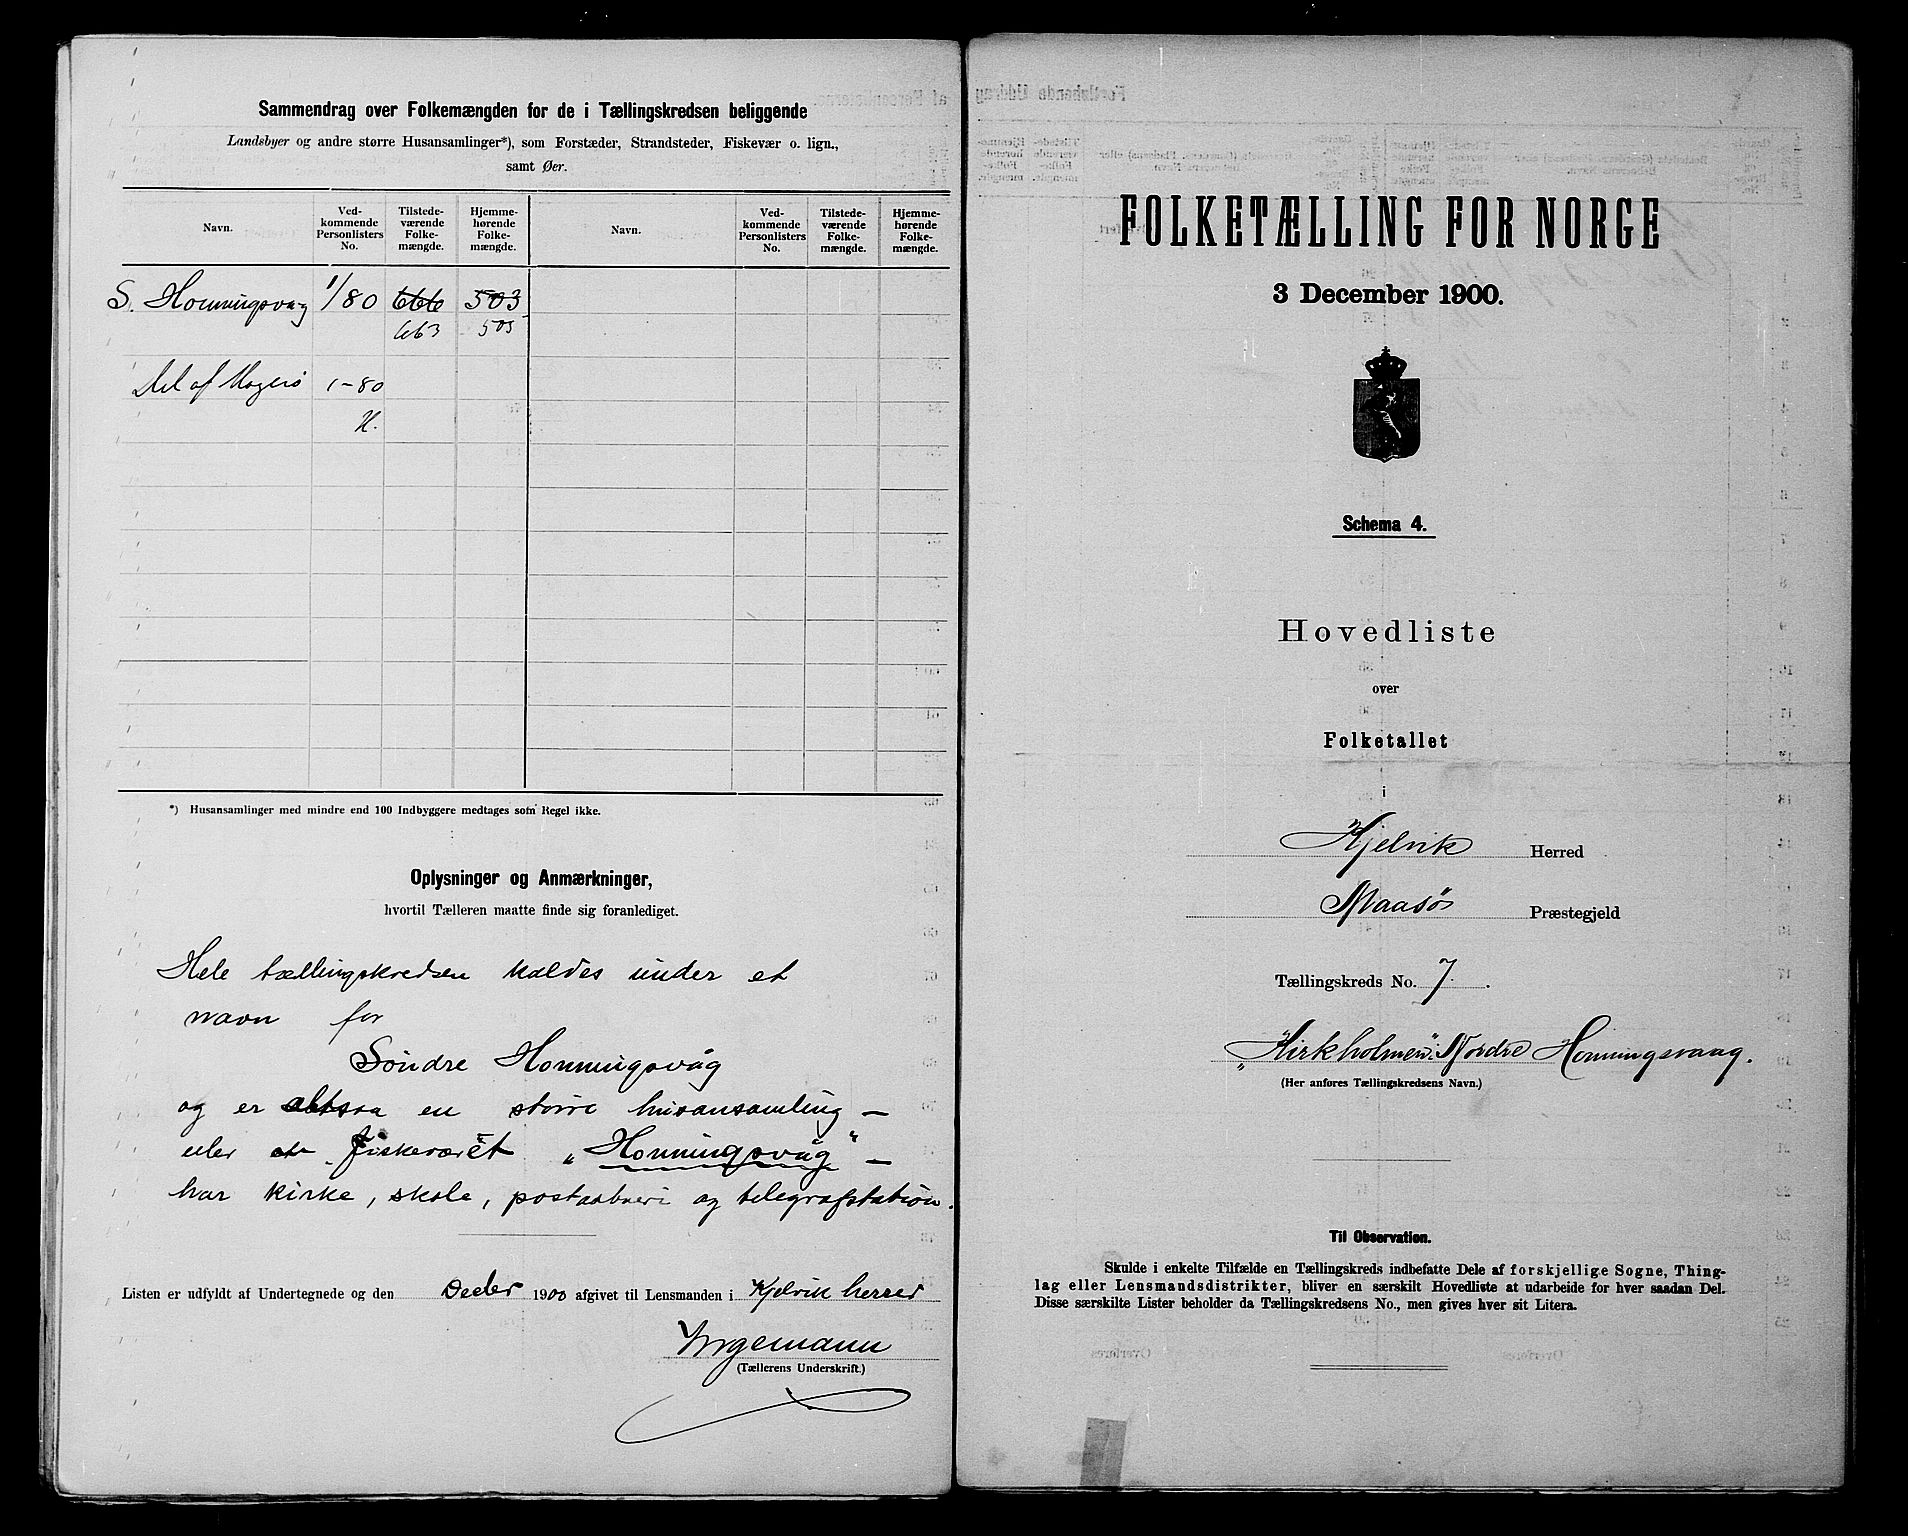 Sammendrag over Folkemængden for de i Tællingskredsen beliggende
Landsbyer og andre større Husansamlinger*), som Forstæder, Strandsteder, Fiskevær o. lign.,
samt Øer.
Navn. Ved-kommende Personlisters No. Tilstede-værende Folke-mængde. Hjemme-hørende Folke-mængde. Navn. Ved-kommende Personlisters No. Tilstede-værende Folke-mængde. Hjemme-hørende Folke-mængde.
S. Honningsvaag 1/80 666 503
663 505
Del af Magerø 1-80
H.
*) Husansamlinger med mindre end 100 Indbyggere medtages som Regel ikke.
Oplysninger og Anmærkninger,
hvortil Tælleren maatte finde sig foranlediget.
Hele tællingskredsen kaldes under et
navn for
Söndre Honningsvåg
og er altsaa en större husansamling —
eller et fiskeværet „Honningsvåg" —
har kirke, skole, postaabneri og telegrafstation.
Listen er udfyldt af Undertegnede og den Decbr 1900 afgivet til Lensmanden i Kjelvik herred
Yngemann
(Tællerens Underskrift.)
FOLKETÆLLING FOR NORGE
3 December 1900.
Schema 4.
Hovedliste
over
Folketallet
i
Kjelvik Herred
Maasø Præstegjeld
Tællingskreds No. 7.
„Kirkholmen" i Nordre Honningsvaag.
(Her anføres Tællingskredsens Navn.)
Til Observation.
Skulde i enkelte Tilfælde en Tællingskreds indbefatte Dele af forskjellige Sogne, Thing-
lag eller Lensmandsdistrikter, bliver en særskilt Hovedliste at udarbeide for hver saadan Del.
Disse særskilte Lister beholder da Tællingskredsens No., men gives hver sit Litera.